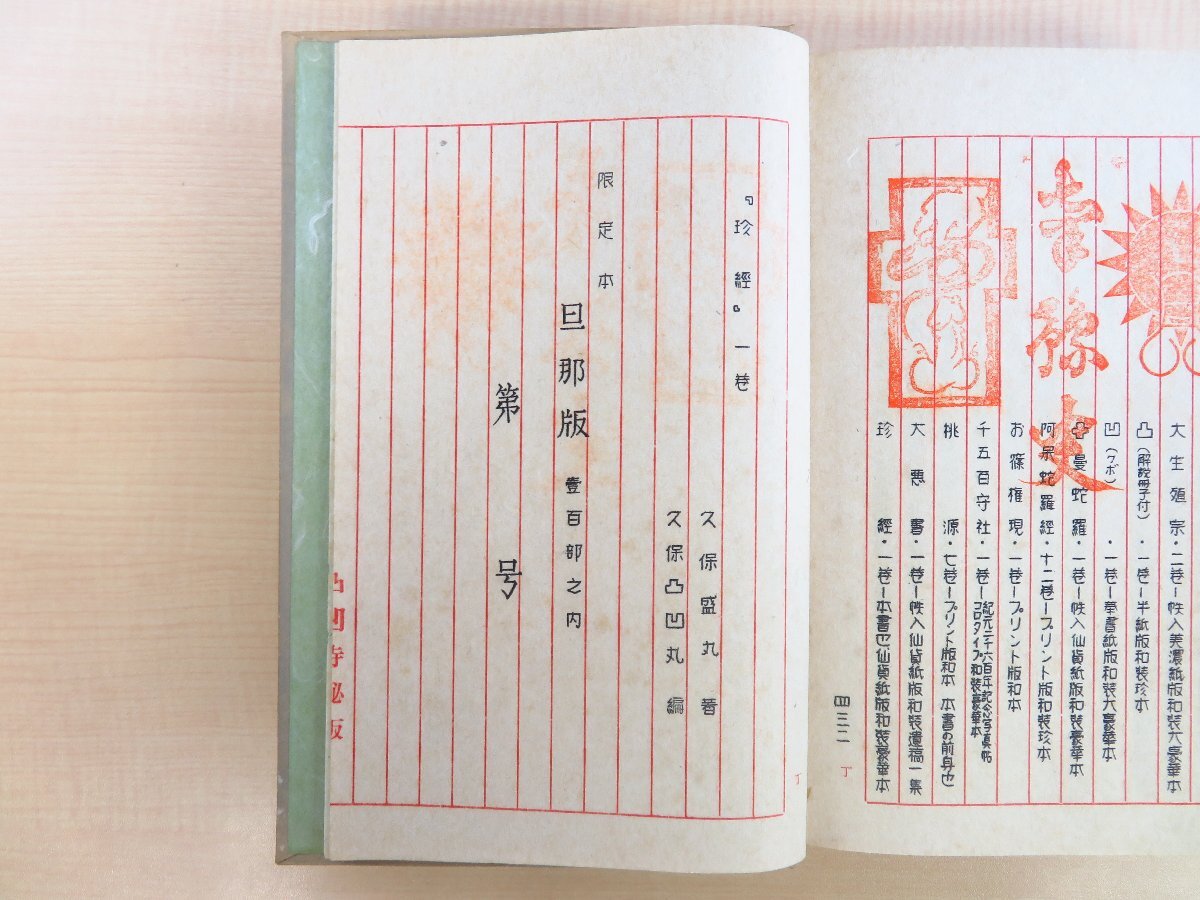 大生殖宗・二巻ー帙入美濃紙版和装大豪華本
凸(解説冊子付)・一巻ー半紙版和装珍本
凹(クボ)・一巻ー奉書紙版和装大豪華本
曼蛇羅・一巻ー帙入仙貨紙版和装豪華本
阿呆蛇羅經・十二巻ープリント版和装珍本
お篠権現・一巻ープリント版和本
千五百守社・一巻ー紀元二千六百年記念写真帖コロタイプ和装豪華本
桃源・七巻ープリント版和本 本書の前身也
大悪書・一巻ー帙入仙貨紙版和装遺稿一集
珍經・一巻ー本書也仙貨紙版和装豪華本
四三二
丁
『珍經』一巻
久保盛丸 著
久保凸凹丸 編
限定本
旦那版 壹百部之内
第 号
凸凹寺秘版
丁